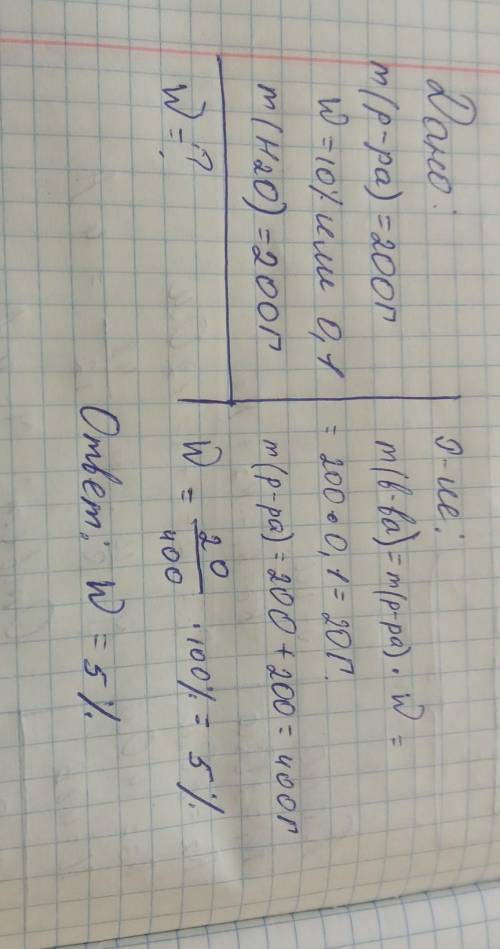 Дано:
m(р-ра) = 200г
W = 10% или 0,1
m(H2O) = 200г
W = ?
Р-ие:
m(в-ва) = m(р-ра) · W =
= 200 · 0,1 = 20г.
m(р-ра) = 200 + 200 = 400г
W = 20/400 · 100% = 5%
Ответ: W = 5%